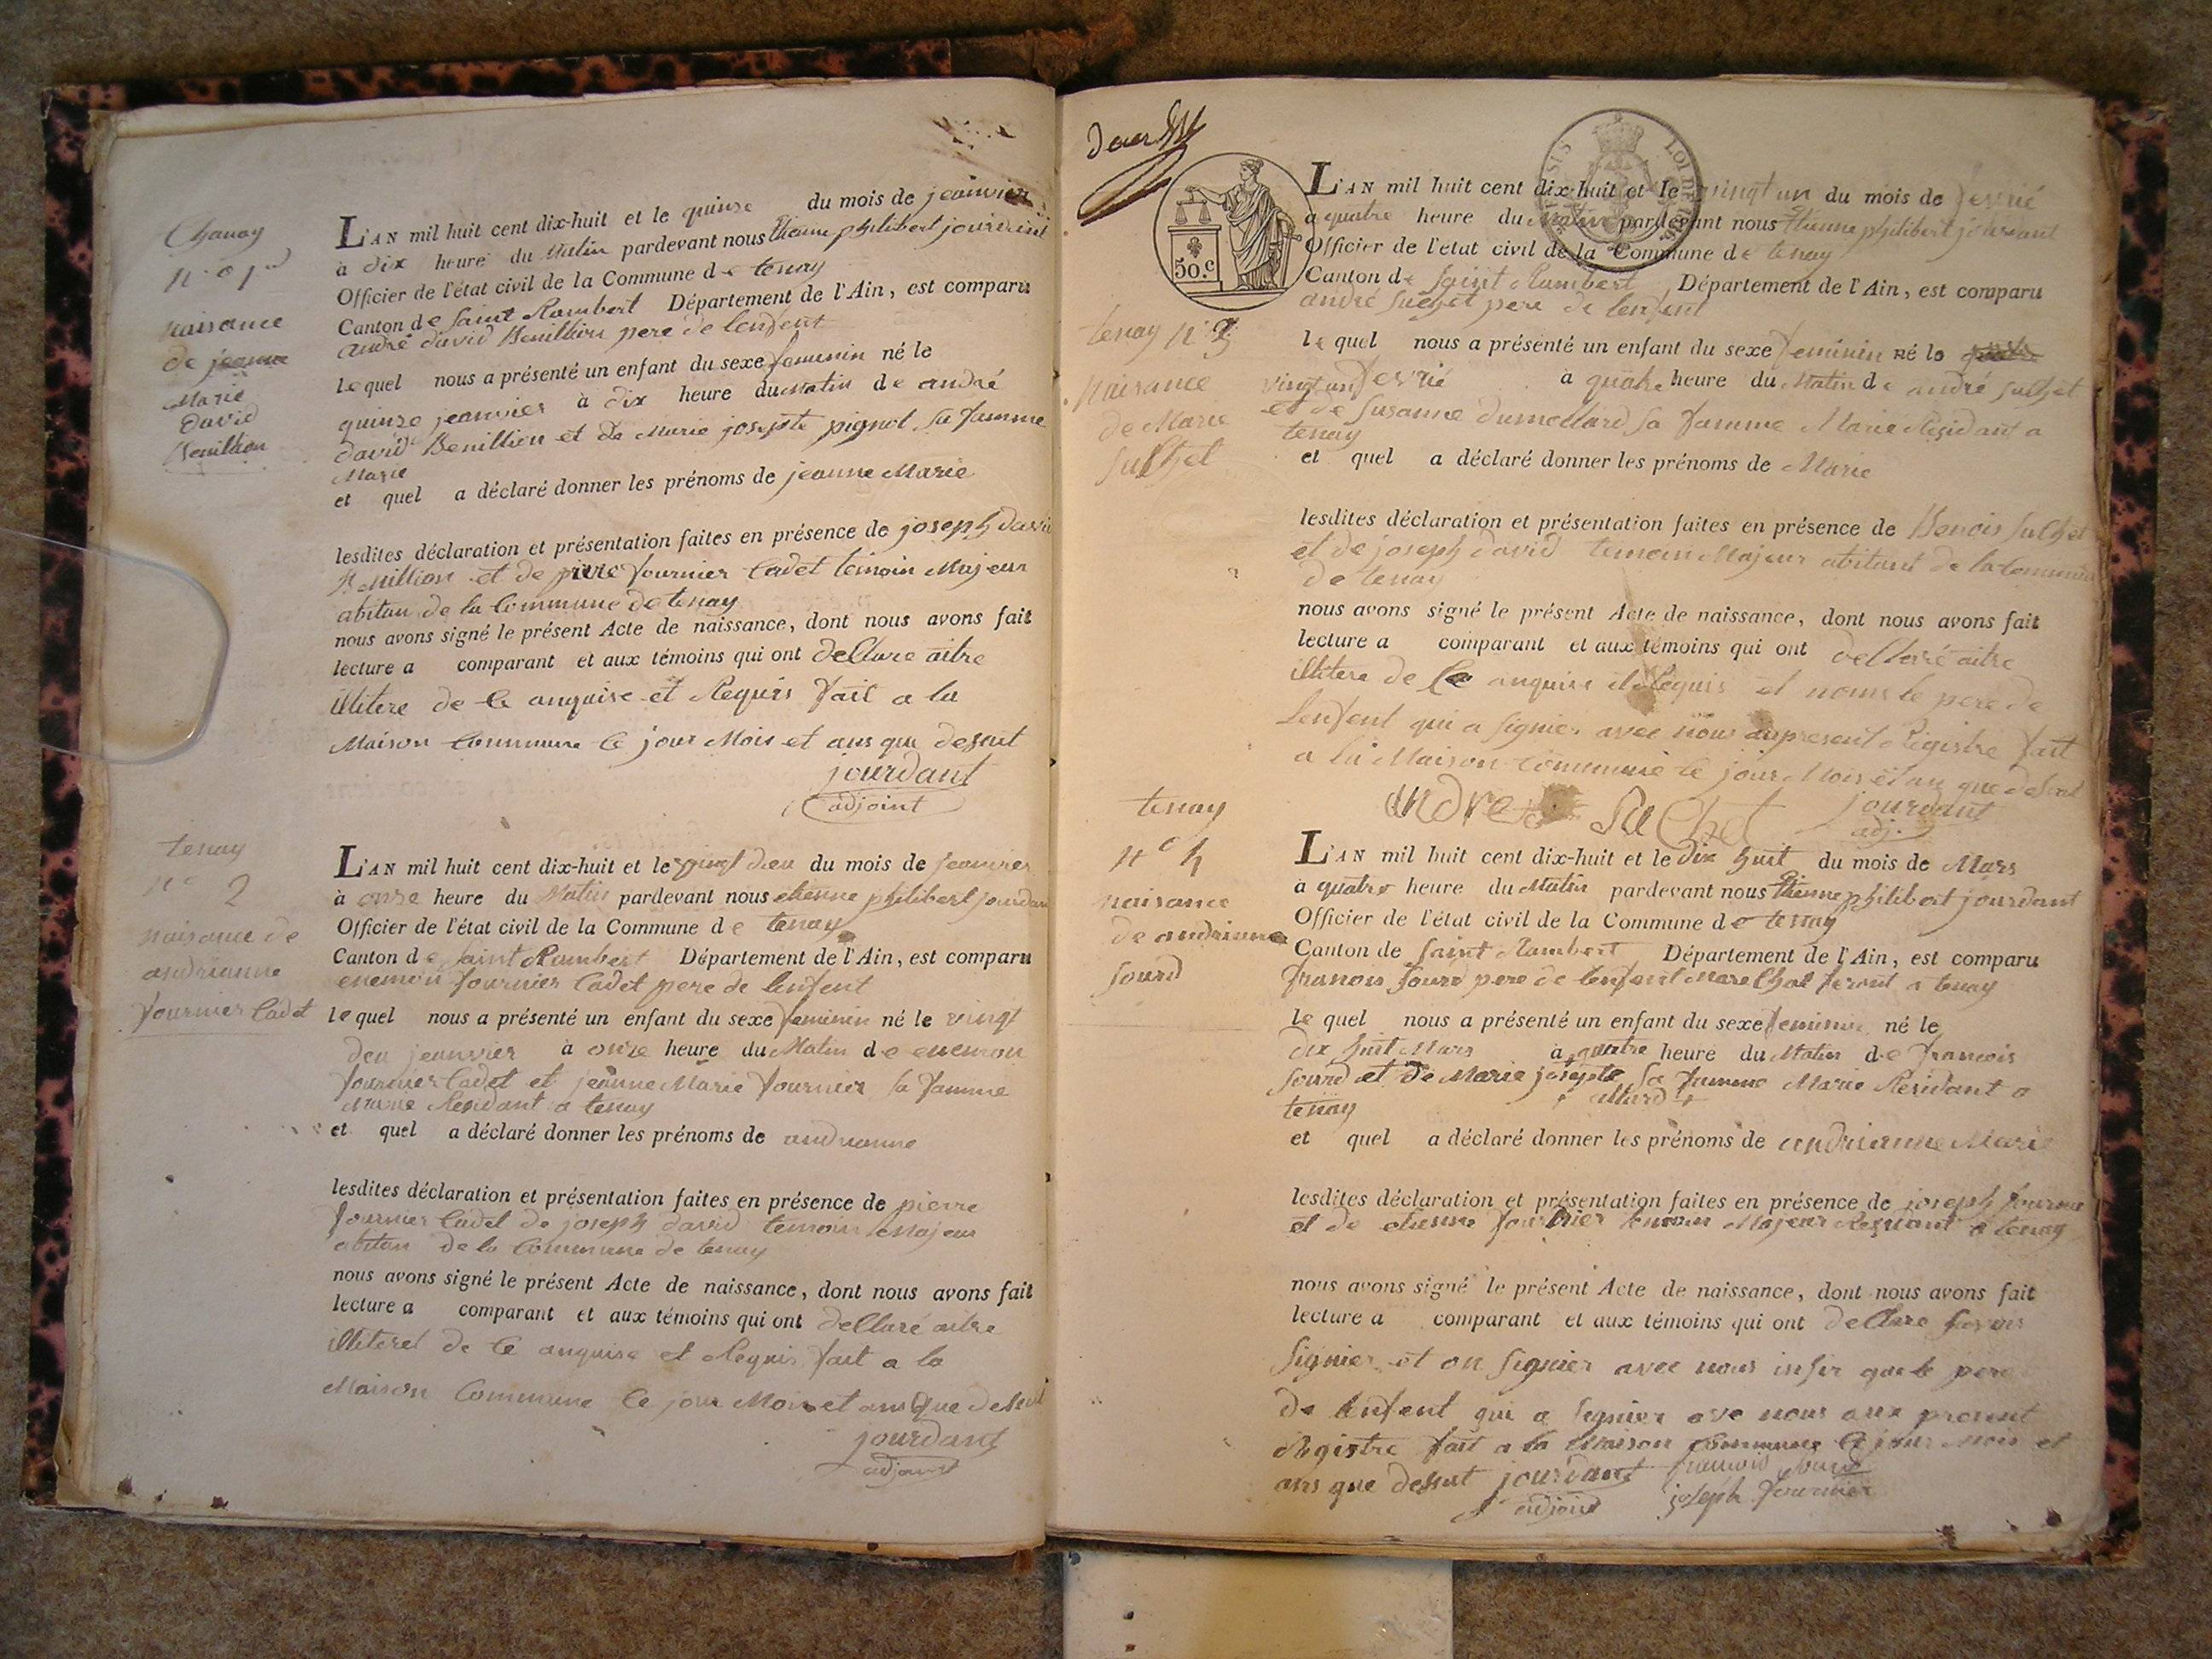 Chanay
n° 1er
naissance
de jeanne
Marie
david
Benillion
L'AN mil huit cent dix-huit et le quinze du mois de jeanvier
à dix heure du Matin pardevant nous etienne philibert jourdant
Officier de l'état civil de la Commune de tenay
Canton de Saint Rambert Département de l'Ain, est comparu
andré david Benillion pere de lenfent
lequel nous a présenté un enfant du sexe femenin né le
quinze jeanvier à dix heure du Matin de andré
david Benillion et de Marie josepte pignol sa famme
Marie
et quel a déclaré donner les prénoms de jeanne Marie
lesdites déclaration et présentation faites en présence de joseph david
Benillion et de pierre fournier Cadet temoin Majeur
abitan de la Commune de tenay
nous avons signé le présent Acte de naissance, dont nous avons fait
lecture a comparant et aux témoins qui ont dellare aitre
illitere de ce anquise et Requis fait a la
Maison Commune le jour Mois et ans que desut
jourdant
adjoint
tenay
n° 2
naisance de
andrianne
fournier Cadet
L'AN mil huit cent dix-huit et le vingt deu du mois de jeanvier
à onze heure du Matin pardevant nous etienne philibert jourdant
Officier de l'état civil de la Commune de tenay
Canton de Saint Rambert Département de l'Ain, est comparu
enemon fournier Cadet pere de lenfent
lequel nous a présenté un enfant du sexe femenin né le vingt
deu jeanvier à onze heure du Matin de enemon
fournier Cadet et jeanne Marie fournier sa famme
Marie Residant a tenay
et quel a déclaré donner les prénoms de andrianne
lesdites déclaration et présentation faites en présence de pierre
fournier Cadet de joseph david temoin Majeur
abitan de la Commune de tenay
nous avons signé le présent Acte de naissance, dont nous avons fait
lecture a comparant et aux témoins qui ont dellaré aitre
illiteret de ce anquise et Requis fait a la
Maison Commune le jour Mois et ans que desut
jourdant
adjoint
deux
50.c
tenay n° 3
Naisance
de Marie
Suchet
L'AN mil huit cent dix-huit et le vingt un du mois de fevrié
a quatre heure du Matin pardevant nous etienne philibert jourdant
Officier de l'état civil de la Commune de tenay
Canton de Saint Rambert Département de l'Ain, est comparu
andré Suchet pere de lenfent
lequel nous a présenté un enfant du sexe feminin né le
vingt un fevrié à quatre heure du Matin de andré Suchet
et de Susanne dumollard sa famme Marié Residant a
tenay
et quel a déclaré donner les prénoms de Marie
lesdites déclaration et présentation faites en présence de Benois Suchet
et de joseph david temoin Majeur abitant de la Commune
de tenay
nous avons signé le présent Acte de naissance, dont nous avons fait
lecture a comparant et aux témoins qui ont dellaré aitre
illitere de ce anquise et Requis et nome le pere de
lenfent qui a signier avec nous aupresent Registre fait
a la Maison commune le jour Mois et an que desut
andre Suchet jourdant
adj.
tenay
n° 4
naisance
de andrianne
Sourd
L'AN mil huit cent dix-huit et le dix huit du mois de Mars
à quatre heure du Matin pardevant nous etienne philibert jourdant
Officier de l'état civil de la Commune de tenay
Canton de Saint Rambert Département de l'Ain, est comparu
francois Sourd pere de lenfent Marechal ferant a tenay
lequel nous a présenté un enfant du sexe feminin né le
dix huit Mars à quatre heure du Matin de francois
Sourd et de Marie josepte sa famme Marie Residant a
tenay + allard +
et quel a déclaré donner les prénoms de andrianne Marie
lesdites déclaration et présentation faites en présence de joseph fournier
et de etienne fournier temoin Majeur Residant a tenay
nous avons signé le présent Acte de naissance, dont nous avons fait
lecture a comparant et aux témoins qui ont dellare savoir
signier et on signier avec nous insir que le pere
de lenfent qui a signier ave nous aux present
Registre fait a la Maison Commune le jour Mois et
ans que desut jourdant francois Sourd
adjoint joseph fournier